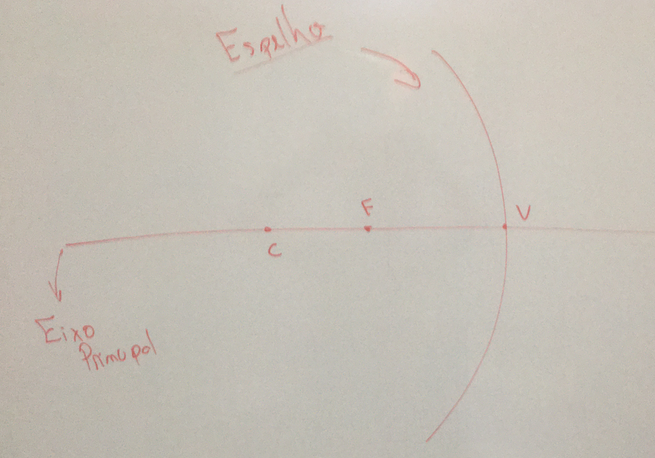 Espelho
F
V
C
Eixo
Principal